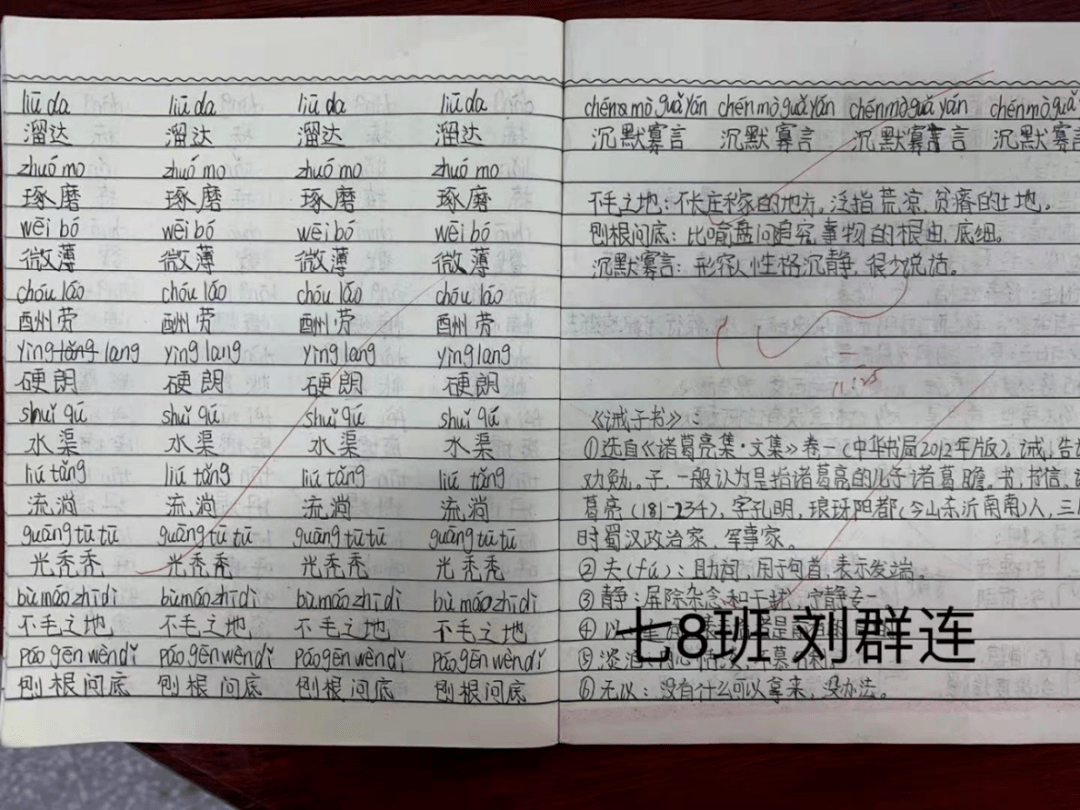 liū da liū da liū da liū da
溜达 溜达 溜达 溜达
zhuó mo zhuó mo zhuó mo zhuó mo
琢磨 琢磨 琢磨 琢磨
wēi bó wēi bó wēi bó wēi bó
微薄 微薄 微薄 微薄
chóu láo chóu láo chóu láo chóu láo
酬劳 酬劳 酬劳 酬劳
yìng lang yìng lang yìng lang yìng lang
硬朗 硬朗 硬朗 硬朗
shuǐ qú shuǐ qú shuǐ qú shuǐ qú
水渠 水渠 水渠 水渠
liú tǎng liú tǎng liú tǎng liú tǎng
流淌 流淌 流淌 流淌
guāng tū tū guāng tū tū guāng tū tū guāng tū tū
光秃秃 光秃秃 光秃秃 光秃秃
bù máo zhī dì bù máo zhī dì bù máo zhī dì bù máo zhī dì
不毛之地 不毛之地 不毛之地 不毛之地
páo gēn wèn dǐ páo gēn wèn dǐ páo gēn wèn dǐ páo gēn wèn dǐ
刨根问底 刨根问底 刨根问底 刨根问底
chén mò guǎ yán chén mò guǎ yán chén mò guǎ yán chén mò guǎ
沉默寡言 沉默寡言 沉默寡言 沉默寡言
不毛之地:不长庄稼的地方。泛指荒凉、贫瘠的土地。
刨根问底:比喻盘问追究事物的根由、底细。
沉默寡言:形容人性格沉静,很少说话。
11.25
《诫子书》:
①选自《诸葛亮集·文集》卷一(中华书局2012年版)。诫,告
劝勉。子,一般认为是指诸葛亮的儿子诸葛瞻。书,书信。
葛亮(181-234),字孔明,琅玡阳都(今山东沂南南)人,三
时蜀汉政治家、军事家。
②夫(fú):助词,用于句首,表示发端。
③静:屏除杂念和干扰,宁静专一
④以
七8班 刘群连
⑤淡泊:
⑥无以:没有什么可以拿来,没办法。